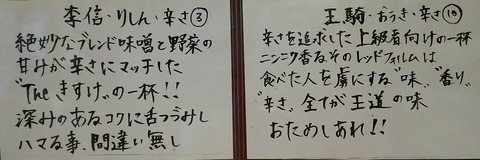 李信・りしん・辛さ③
絶妙なブレンド味噌と野菜の
甘みが辛さにマッチした
"Theきすけ"の一杯!!
深みのあるコクに舌づつみし
ハマる事、間違い無し
王騎・おうき・辛さ⑩
辛さを追求した上級者向けの一杯
ニンニク香るそのレッドフォルムは
食べた人を虜にする"味""香り"
"辛さ"全てが王道の味
おためしあれ!!